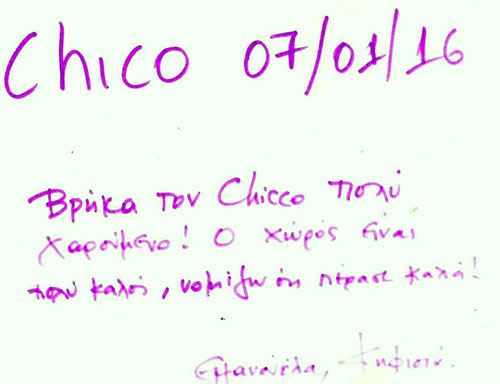 Chico 07/01/16
Βρήκα τον Chicco πολύ
χαρούμενο! Ο χώρος είναι
πολύ καλός, νομίζω ότι πέρασε καλά!
Εμανουέλα, Κηφισιά.